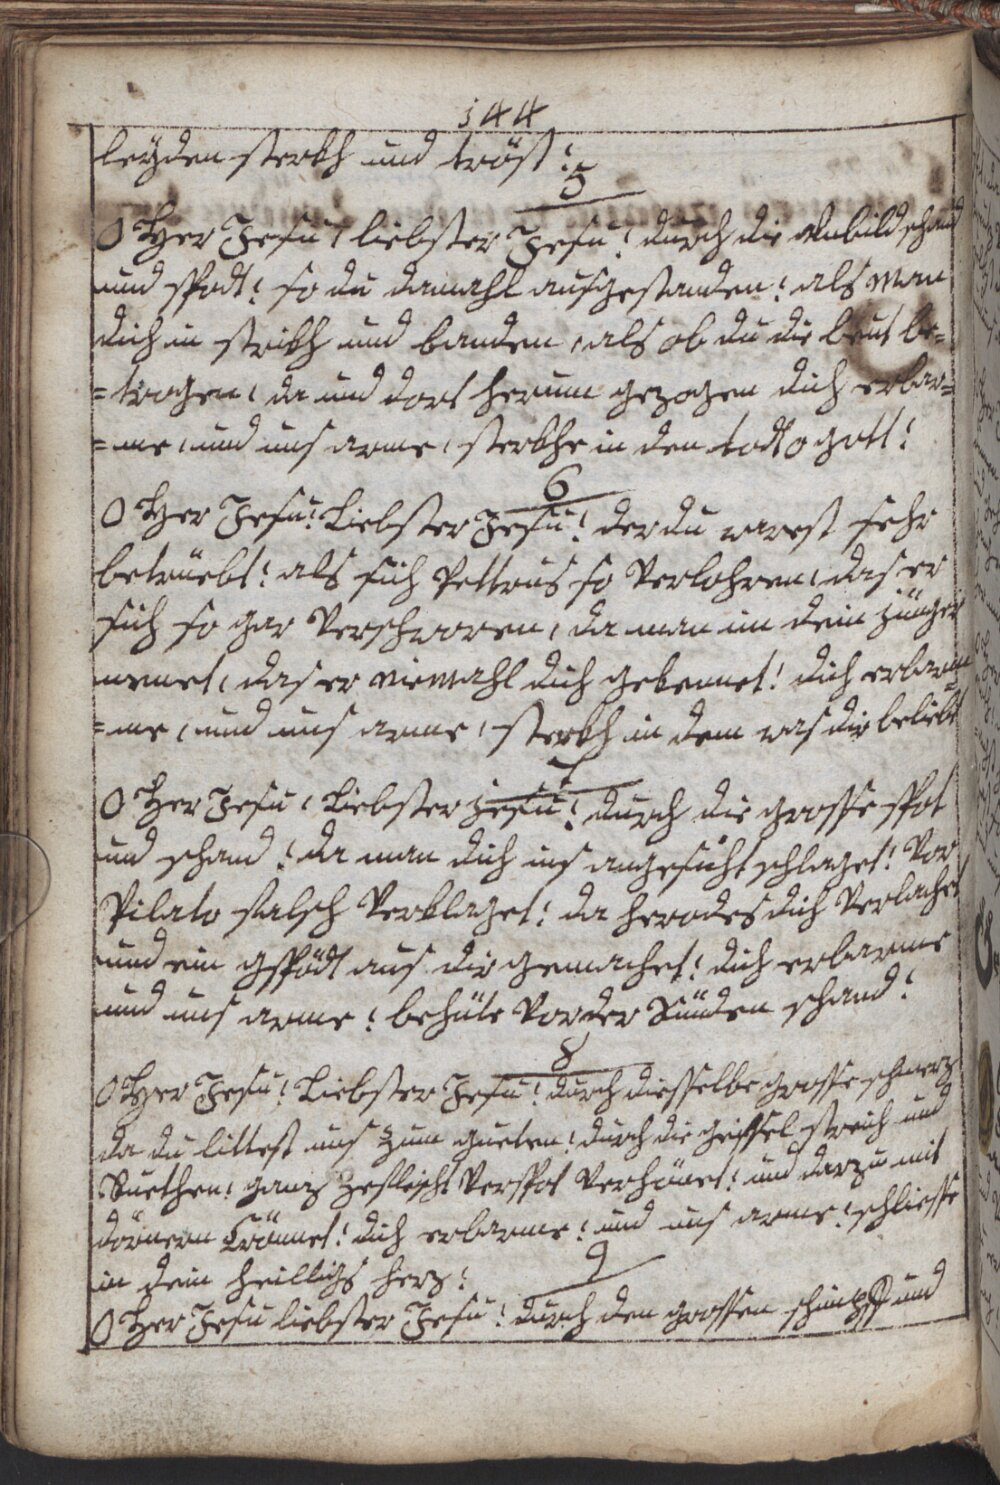 144
leÿden sterkh und tröst!
5
O Her Jesu! liebster Jesu! durch die Unbild schand
und spodt! so du damahl ausgestanden! als man
dich in strikh und banden, als ob du die leut be=
=trogen, da und dort herum gezogen dich erbar=
=me, und uns arme, sterkhe in den todt o gott!
6
O Her Jesu! Liebster Jesu! der du warest sehr
betrüebt! als sich Pettrus so verlohren, das er
sich so gar verschworen, da man im dein jünger
nenet, das er niemahl dich gekennet! dich erbarm
=me, und uns arme, sterkh in dem was dir beliebt
7
O Her Jesu! Liebster Jesu! durch die grosse spot
und schand! da man dich ins angesicht schlaget! vor
Pilato falsch verklaget! da herodes dich verlachet
und ein gspödt aus dir gemachet! dich erbarme
und uns arme! behüte vor der Sünden schand!
8
O Her Jesu! Liebster Jesu! durch diesselbe grosse schmerz
da du littest uns zum gueten! durch die geissel streich und
Ruethen! ganz zerfleischt verspot verhönet! und darzu mit
dörnern Crönnet! dich erbarme! und uns arme! schliesse
in dein heilligs herz!
9
O Her Jesu liebster Jesu! durch den grossen schimpff und